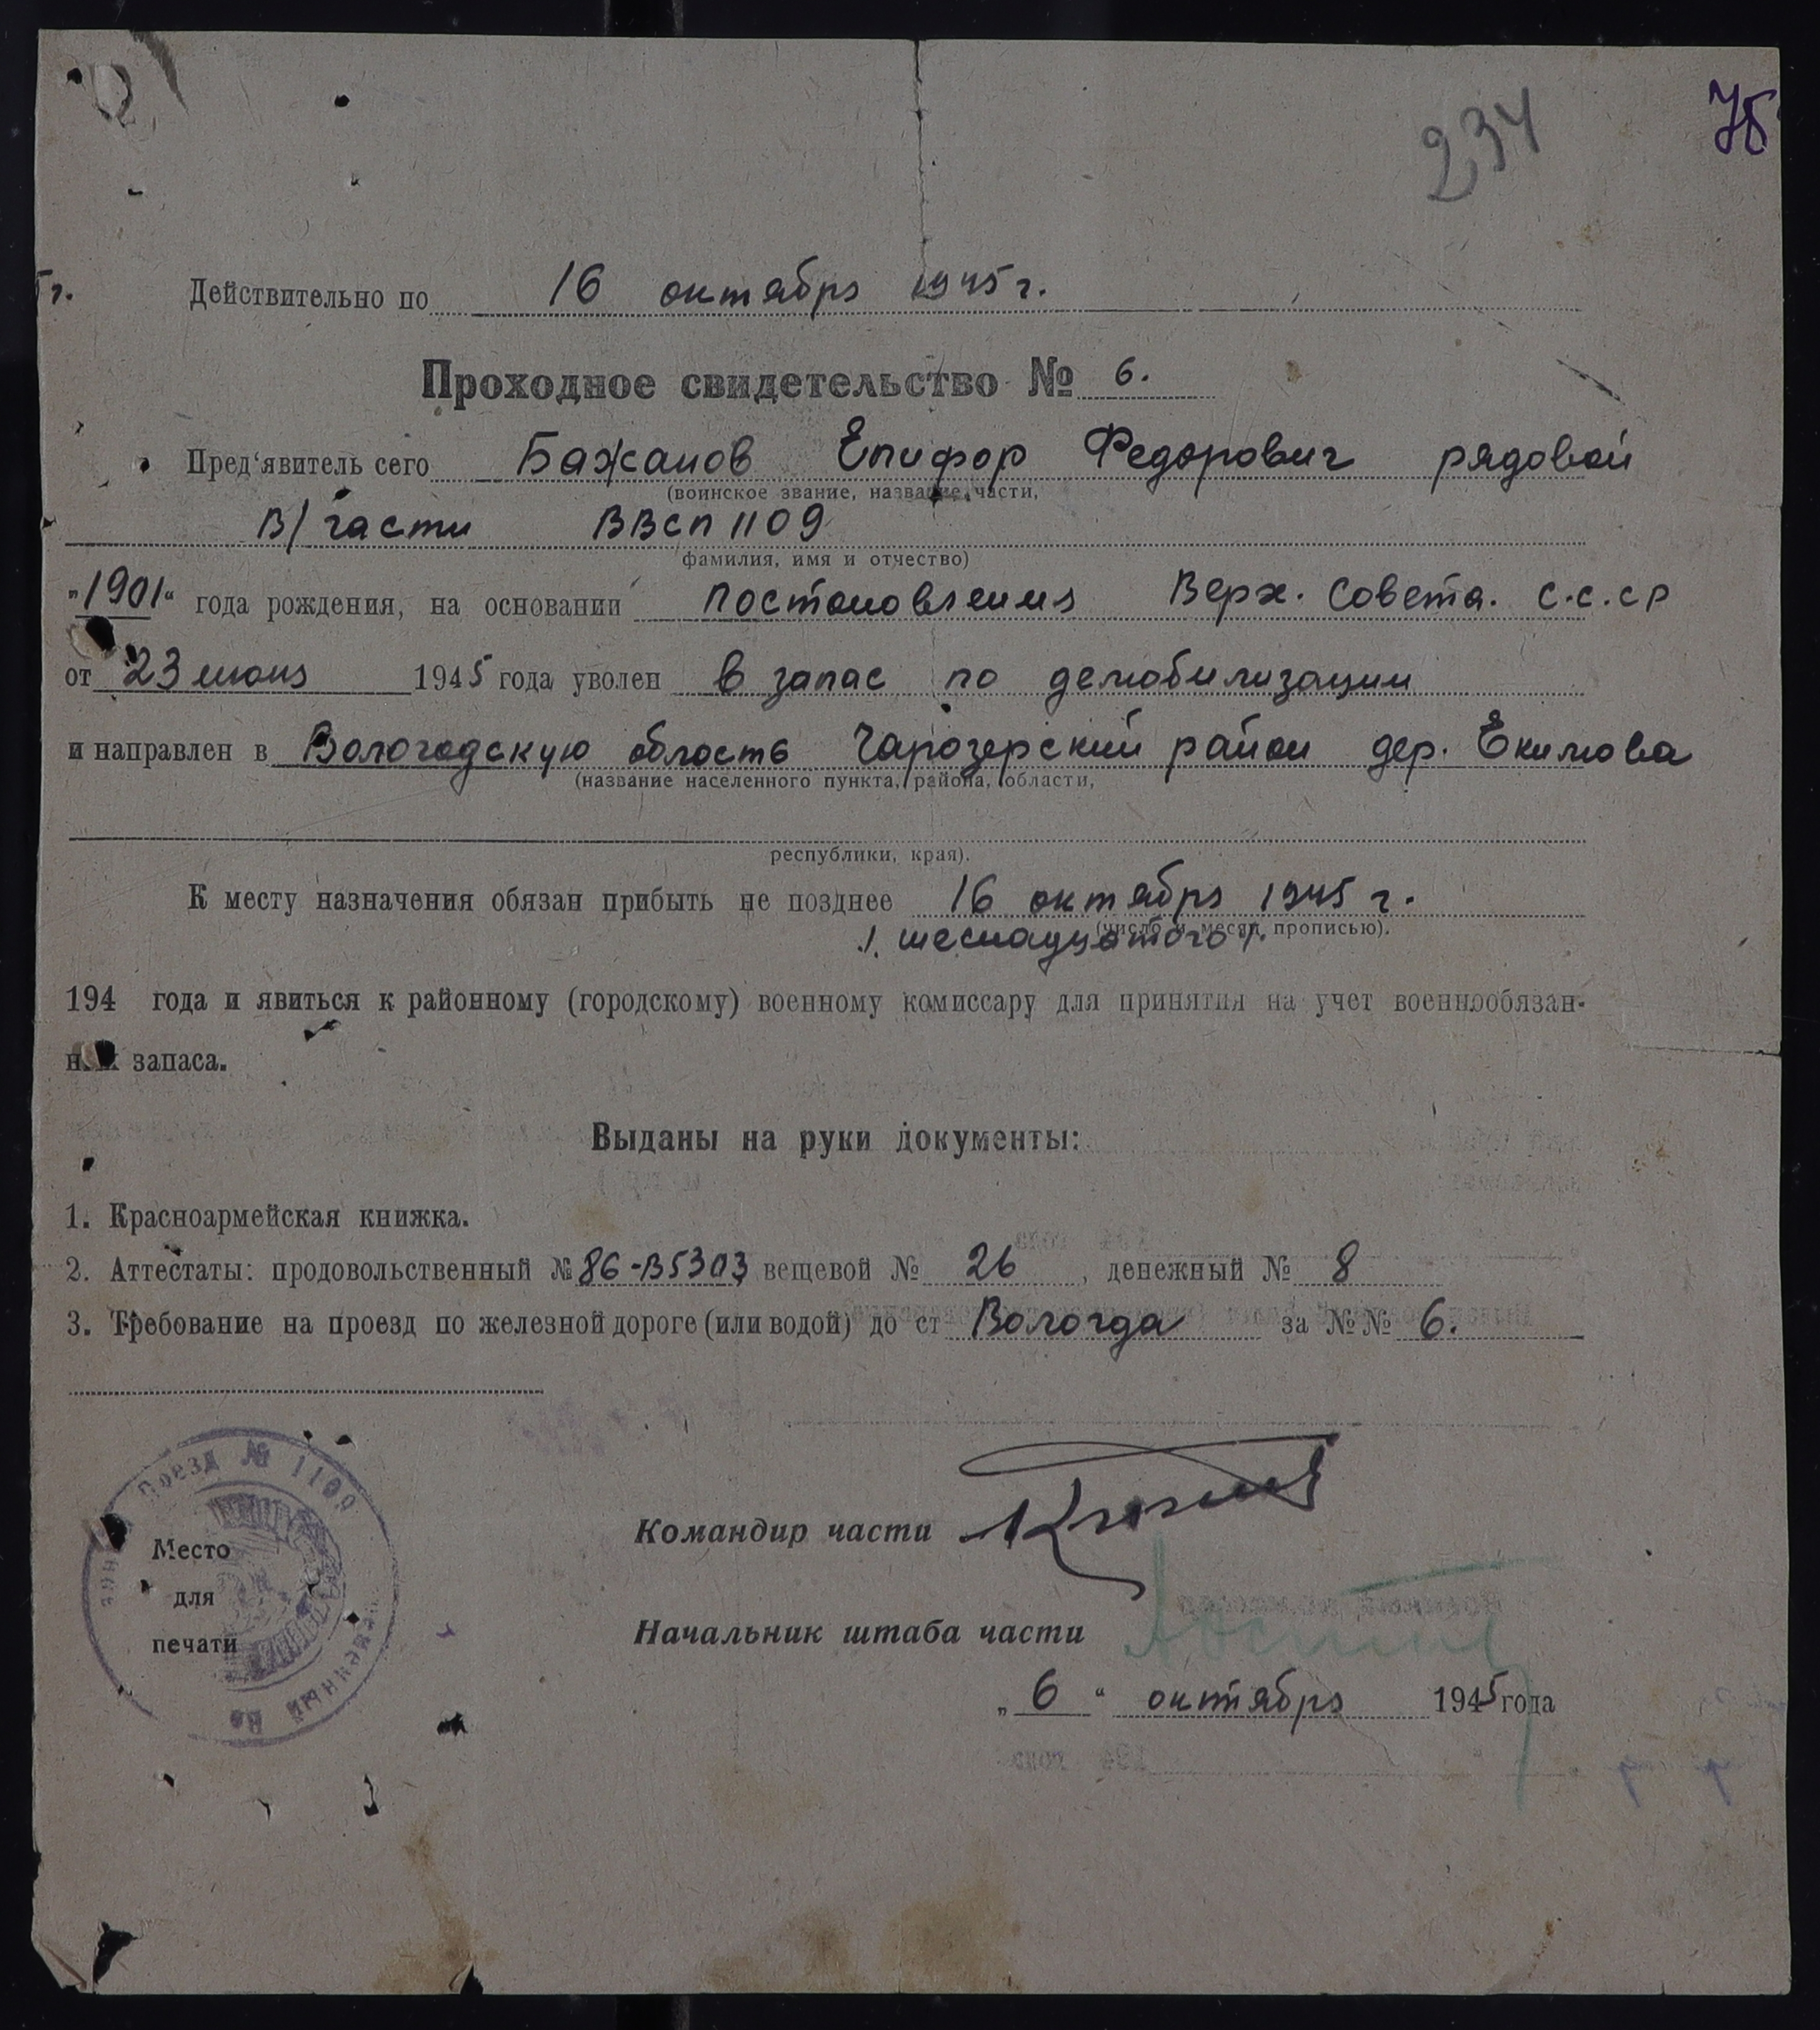 234
75
г.
Действительно по 16 октября 1945 г.
Проходное свидетельство № 6.
Пред'явитель сего Бажанов Епифор Федорович рядовой
(воинское звание, название части,
В/части ВВСП 1109
фамилия, имя и отчество)
„1901“ года рождения, на основании Постановления Верх. Совета. С.С.СР
от 23 июня 1945 года уволен в запас по демобилизации
и направлен в Вологодскую область Чарозерский район дер. Екимова
(название населенного пункта, района, области,
республики, края).
К месту назначения обязан прибыть не позднее 16 октября 1945 г.
(число и месяц прописью).
/. шеснадцатого /.
194 года и явиться к районному (городскому) военному комиссару для принятия на учет военнообязан-
ных запаса.
Выданы на руки документы:
1. Красноармейская книжка.
2. Аттестаты: продовольственный № 86-В5303 вещевой № 26, денежный № 8
3. Требование на проезд по железной дороге (или водой) до ст Вологда за №№ 6.
Поезд № 1109
Место
для
печати
Командир части
Начальник штаба части
„ 6 “ октября 1945 года